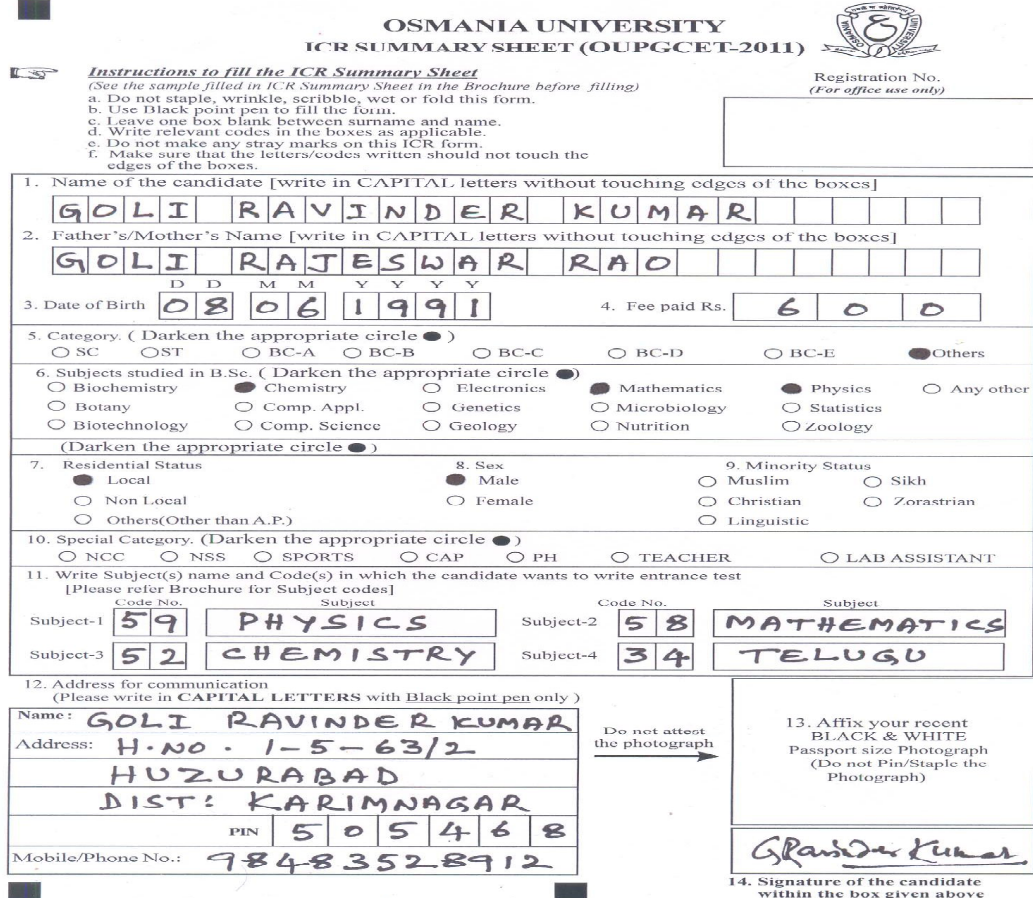 OSMANIA UNIVERSITY
ICR SUMMARY SHEET (OUPGCET-2011)
Instructions to fill the ICR Summary Sheet
(See the sample filled in ICR Summary Sheet in the Brochure before filling)
a. Do not staple, wrinkle, scribble, wet or fold this form.
b. Use Black point pen to fill the form.
c. Leave one box blank between surname and name.
d. Write relevant codes in the boxes as applicable.
e. Do not make any stray marks on this ICR form.
f. Make sure that the letters/codes written should not touch the
edges of the boxes.
Registration No.
(For office use only)
1. Name of the candidate [write in CAPITAL letters without touching edges of the boxes]
GOLI RAVINDER KUMAR
2. Father's/Mother's Name [write in CAPITAL letters without touching edges of the boxes]
GOLI RAJESWAR RAO
D D M M Y Y Y Y
3. Date of Birth 08 06 1991 4. Fee paid Rs. 6 0 0
5. Category. ( Darken the appropriate circle ● )
SC ST BC-A BC-B BC-C BC-D BC-E Others
6. Subjects studied in B.Sc. ( Darken the appropriate circle ●)
Biochemistry Chemistry Electronics Mathematics Physics Any other
Botany Comp. Appl. Genetics Microbiology Statistics
Biotechnology Comp. Science Geology Nutrition Zoology
(Darken the appropriate circle ● )
7. Residential Status 8. Sex 9. Minority Status
Local Male Muslim Sikh
Non Local Female Christian Zorastrian
Others(Other than A.P.) Linguistic
10. Special Category. (Darken the appropriate circle ● )
NCC NSS SPORTS CAP PH TEACHER LAB ASSISTANT
11. Write Subject(s) name and Code(s) in which the candidate wants to write entrance test
[Please refer Brochure for Subject codes]
Code No. Subject Code No. Subject
Subject-1 59 PHYSICS Subject-2 58 MATHEMATICS
Subject-3 52 CHEMISTRY Subject-4 34 TELUGU
12. Address for communication
(Please write in CAPITAL LETTERS with Black point pen only )
Name: GOLI RAVINDER KUMAR
Address: H.NO. 1-5-63/2
HUZURABAD
DIST: KARIMNAGAR
PIN 505468
Mobile/Phone No.: 98483528912
Do not attest
the photograph
13. Affix your recent
BLACK & WHITE
Passport size Photograph
(Do not Pin/Staple the
Photograph)
G Ravinder Kumar
14. Signature of the candidate
within the box given above